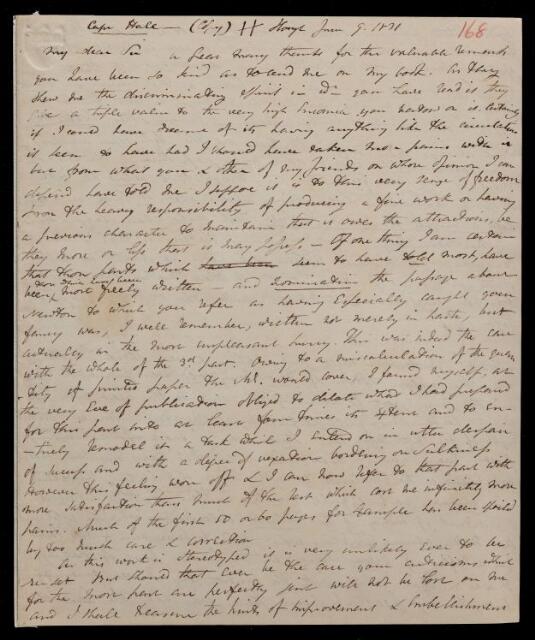 Capt Hall — (Copy) Slough June 9. 1831
168
My dear Sir a great many thanks for the valuable remarks
you have been so kind as to send me on my book. As they
shew me the discriminating spirit in wch you have read it they
give a triple value to the very high Encomia you bestow on it. Certainly
if I could have dreamed of its having anything like the circulation
it seems to have had I should have taken more pains with it
but from what you & others of my friends on whose opinion I can
depend have told me I suppose it is to this very sense of freedom
from the heavy responsibility of producing a fine work or having
a previous character to maintain that it owes the attractions, be
they more or less that it may possess — Of one thing I am certain
that those parts which have been seem to have told most, have
been most freely written — and dominating the passage about
Newton to which you refer as having especially caught your
fancy was, I well remember, written not merely in haste, but
actually in the most unpleasant hurry. This was indeed the case
with the whole of the 3rd part. Owing to a miscalculation of the quan
-tity of printed paper the M.S. would cover, I found myself, at
the very Eve of publication obliged to dilate what I had prepared
for this part into at least four times its extent and to en-
-tirely remodel it a task which I entered on in utter despair
of success and with a degree of vexation bordering on sulkiness
However this feeling wore off & I can now refer to that part with
more satisfaction than much of the rest which cost me infinitely more
pains. Much of the first 50 or 60 pages for Example has been spoiled
by too much care & correction
As this work is stereotyped it is very unlikely ever to be
re-set But should that Ever be the case your criticisms which
for the most part are perfectly just will not be lost on me
and I shall treasure the hints of improvement & Embellishment